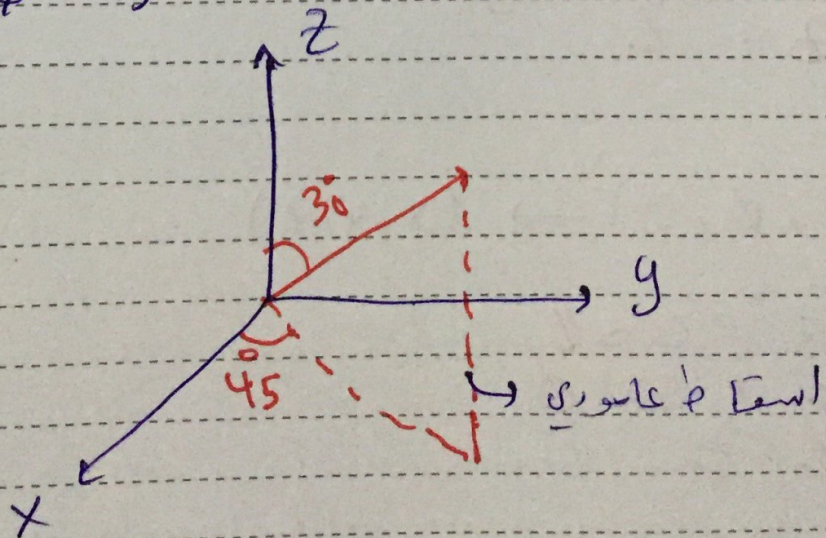 Z
30°
y
45°
اسقاط عامودي
X